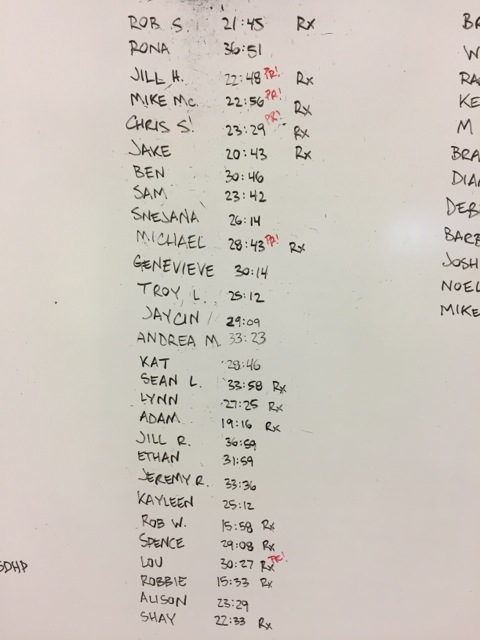 ROB S. 21:45 Rx
RONA 36:51
JILL H. 22:48 PR! Rx
MIKE MC. 22:56 PR! Rx
CHRIS S. 23:29 PR! Rx
JAKE 20:43 Rx
BEN 30:46
SAM 23:42
SNEJANA 26:14
MICHAEL 28:43 PR! Rx
GENEVIEVE 30:14
TROY L. 25:12
JAYCIN 29:09
ANDREA M. 33:23
KAT 28:46
SEAN L. 33:58 Rx
LYNN 27:25 Rx
ADAM 19:16 Rx
JILL R. 36:59
ETHAN 31:59
JEREMY R. 33:36
KAYLEEN 25:12
ROB W. 15:58 Rx
SPENCE 29:08 Rx
LOU 30:27 Rx PR!
ROBBIE 15:33 Rx
ALISON 23:29
SHAY 22:33 Rx
SDHP
BR
W
RA
KE
M
BRA
DIA
DEB
BARB
JOSH
NOEL
MIKE